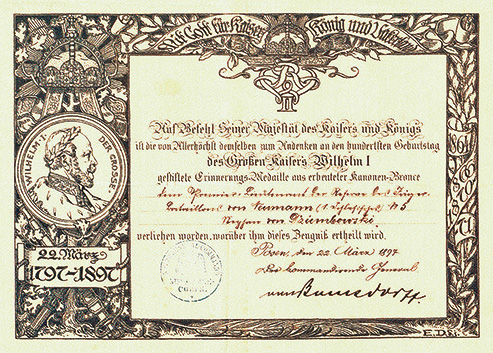 Mit Gott für Kaiser, König und Vaterland
WILHELM·I· DER GROSSE
22 März
1797-1897
Auf Befehl Seiner Majestät des Kaisers und Königs
ist die von Allerhöchst demselben zum Andenken an den hundertsten Geburtstag
des Großen Kaisers Wilhelm I
gestiftete Erinnerungs-Medaille aus erbeuteter Kanonen-Bronce
dem Premier-Lieutenant der Reserve des Jäger
Bataillons von Neumann (1. Schlesisches) № 5
Stephan von Dziembowski
verliehen worden, worüber ihm dieses Zeugniß ertheilt wird.
Posen, den 22 März 1897
Der kommandirende General
E.D.